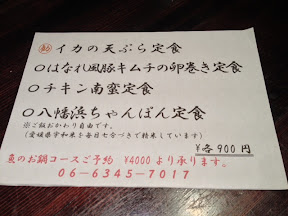 イカの天ぷら定食
○はなれ風豚キムチの卵巻き定食
○チキン南蛮定食
○八幡浜ちゃんぽん定食
※ご飯おかわり自由です。
(愛媛県宇和米を毎日七分づきで精米しています)
¥各900円
魚のお鍋コースご予約 ¥4000より承ります。
06-6345-7017